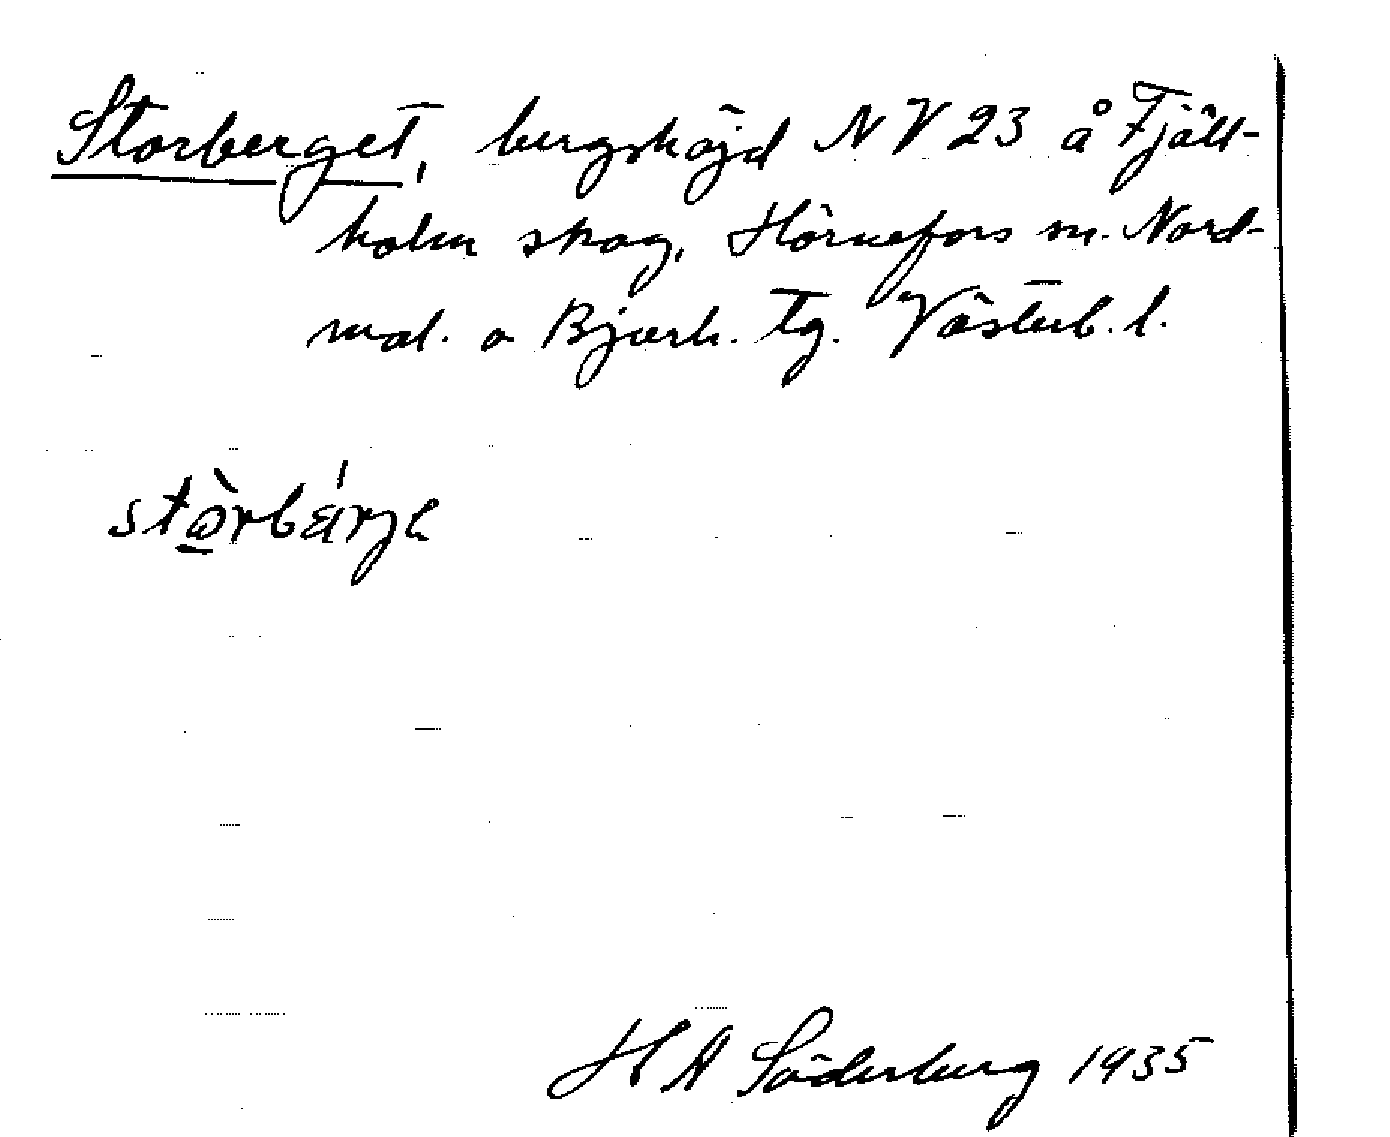 Storberget, bergshöjd NV 23 å Fjäll-
holm skog, Hörnefors sn. Nord-
mal. o Bjurh. Tg. Västerb. l.
H A Söderberg 1935